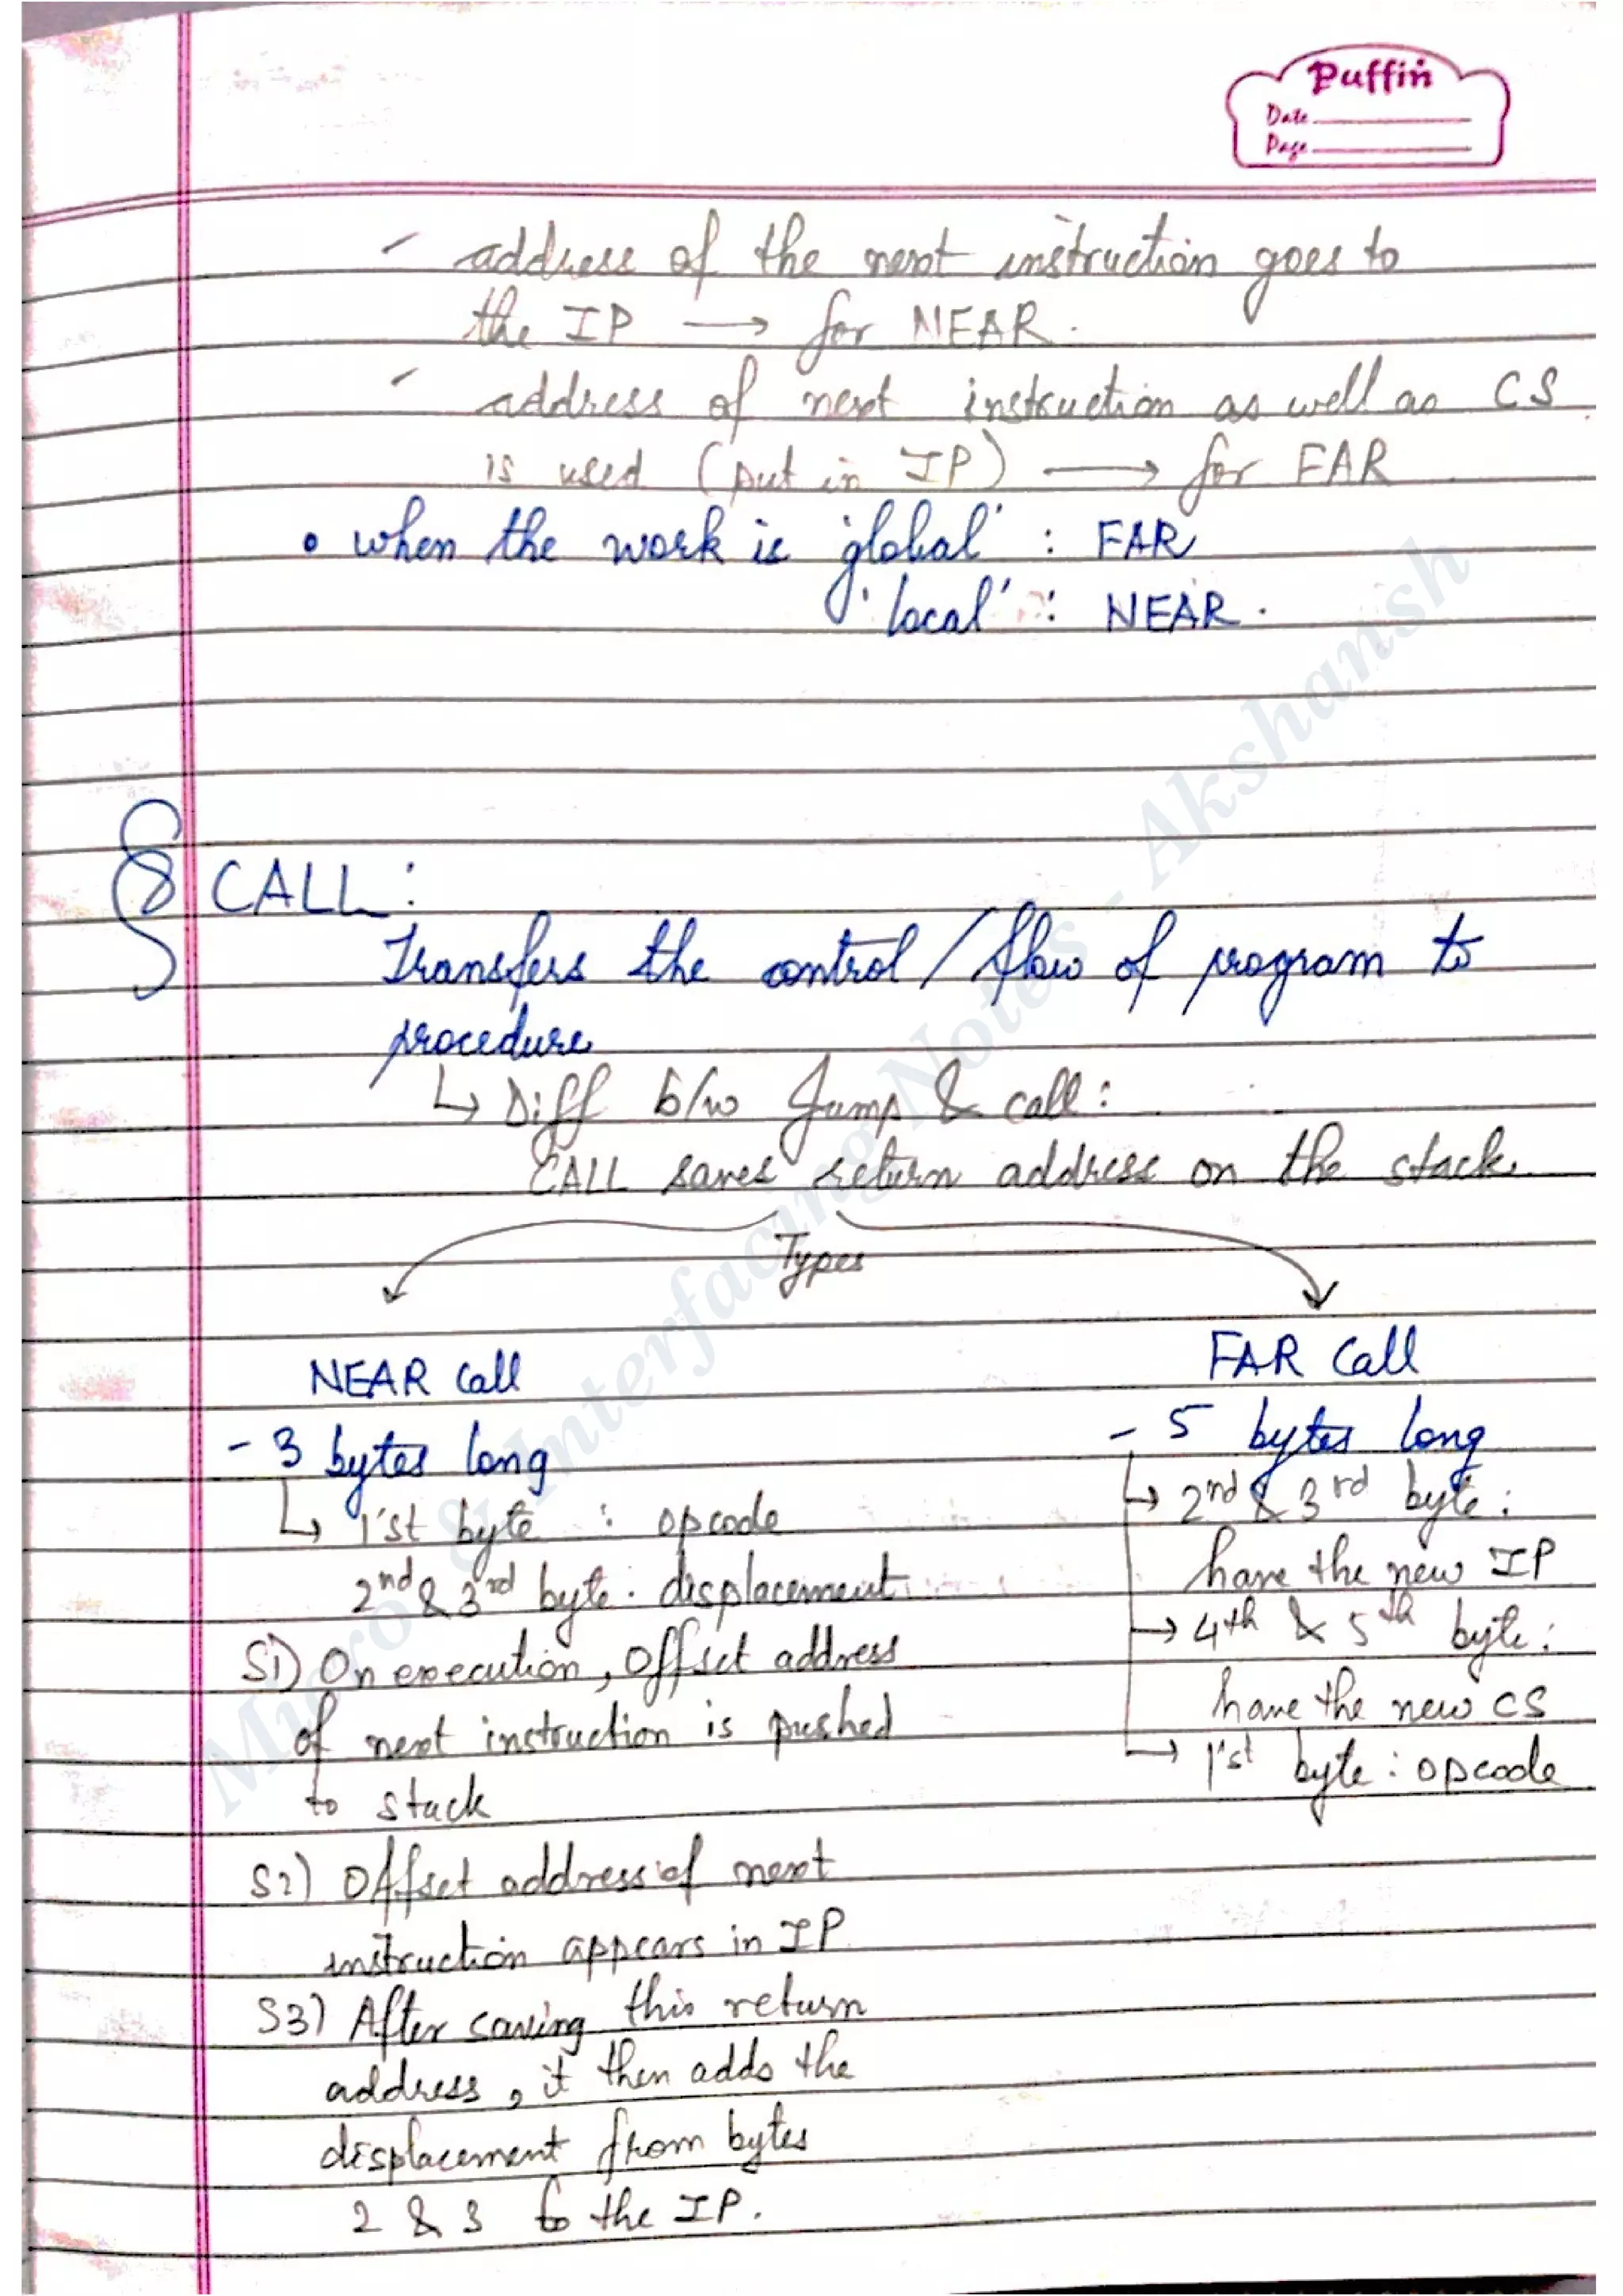 Puffin
Date
Page
- address of the next instruction goes to
the IP → for NEAR.
- address of next instruction as well as CS
is used (put in IP) → for FAR
• when the work is 'global' : FAR
'local' : NEAR.
§ CALL:
Transfers the control/flow of program to
procedure
↳ Diff b/w Jump & call:
CALL saves return address on the stack.
Types
NEAR Call
- 3 bytes long
↳ 1'st byte : opcode
2nd & 3rd byte : displacement
S1) On execution, offset address
of next instruction is pushed
to stack
S2) Offset address of next
instruction appears in IP
S3) After saving this return
address, it then adds the
displacement from bytes
2 & 3 to the IP.
FAR Call
- 5 bytes long
↳ 2nd & 3rd byte:
have the new IP
→ 4th & 5th byte:
have the new CS
→ 1'st byte: opcode
Micro & Interfacing Notes - Akshansh